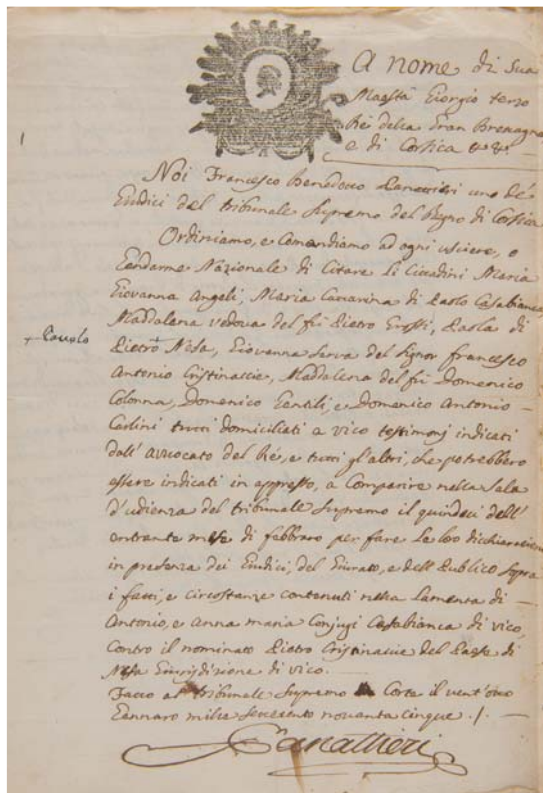 A nome di Sua
Maestà Giorgio terzo
Rè della Gran Bretagna
e di Corsica &c. &c.
Noi Francesco Benedetto Panattieri uno de'
Giudici del tribunale Supremo del Regno di Corsica
Ordiniamo, e Comandiamo ad ogni usciere, o
Gendarme Nazionale di Citare Li Cittadini Maria
Giovanna Angeli, Maria Catarina di Paolo Casabianca,
Maddalena vedova del fù Pietro Grossi, Paola di
+ Paolo
Pietro Nesa, Giovanna Serva del Signor francesco
Antonio Cristinaccie, Maddalena del fù Domenico
Colonna, Domenico Gentili, e Domenico Antonio
Carlini tutti domiciliati a vico testimonj indicati
dall' avvocato del Rè, e tutti gl'altri, che potrebbero
essere indicati in appresso, a Comparire nella Sala
d'udienza del tribunale Supremo il quindeci dell'
entrante mese di febbraro per fare Le loro dichiarazioni
in presenza dei Giudici, del Giurato, e dell' Publico Sopra
i fatti, e circostanze contenuti nella Lamenta di
Antonio, e Anna maria Conjugi Casabianca di vico,
Contro il nominato Pietro Cristinaccie del Paese di
Nesa Giurisdizione di vico.
Fatto al tribunale Supremo Corte il vent'otto
Gennaro mille settecento novanta cinque ./.
Panattieri